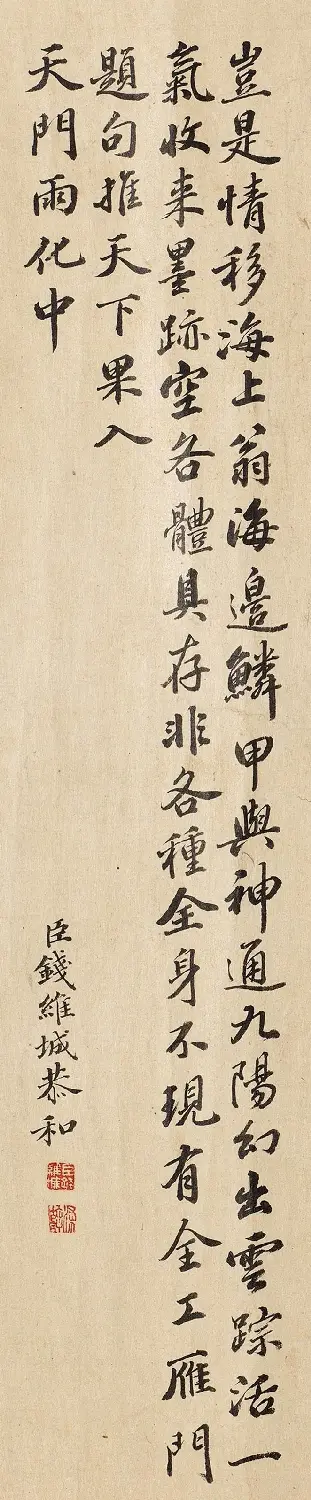 豈是情移海上翁海邊鱗甲與神通九陽幻出雲踪活一
氣收来墨跡空各體具存非各種全身不現有全工雁門
題句推天下果入
天門雨化中
臣錢維城恭和